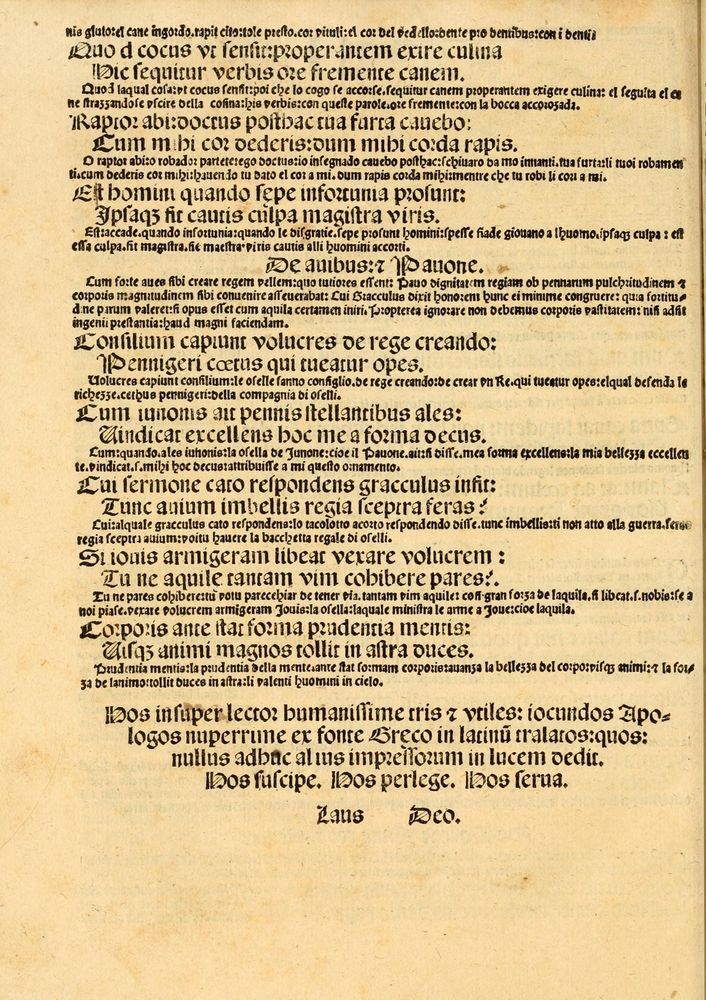 nis glutor:el cane ingordo.rapit cito:tole presto.cor vituli:el cor del vedello:dente pro dentibus:con i denti
Quo d cocus vt sensit:properantem exire culina
Hic sequitur verbis ore fremente canem.
Quod laqual cosa:vt cocus sensit:poi che lo cogo se accorse.sequitur canem properantem exigere culina: el seguita el ca
ne strazzandose vscire della cosina:his verbis:con queste parole.ore fremente:con la bocca accorozada.
Raptor abi:doctus posthac tua furta cauebo:
Cum mihi cor dederis:dum mihi corda rapis.
O raptor abi:o robador partete:ego doctus:io insegnado cauebo posthac:schiuaro da mo innanti.tua furta:li tuoi robamen
ti.cum dederis cor mihi:hauendo tu dato el cor a mi. dum rapis corda mihi:mentre che tu robi li cori a mi.
Est homini quando sepe infortunia prosunt:
Ipsaqз fit cautis culpa magistra viris.
Est:accade.quando infortunia:quando le disgratie.sepe prosunt homini:spesse fiade giouano a lhuomo.ipsaqз culpa: est
essa culpa.fit magistra.fie maestra.viris cautis alli huomini accorti.
De auibus:⁊ Pauone.
Cum forte aues sibi creare regem vellem:quo tutiores essent: Pauo dignitatem regiam ob pennarum pulchritudinem ⁊
corporis magnitudinem sibi conuenire asseuerabat: Cui Gracculus dixit honorem hunc ei minime congruere: quia fortitu⸗
d ne parum valeret:si opus esset cum aquila certamen iniri. Propterea ignorare non debemus corporis vastitatem: nisi adsit
ingenii prestantia:haud magni faciendam.
Consilium capiunt volucres de rege creando:
Pennigeri cœtus qui tueatur opes.
Uolucres capiunt consilium:le oselle fanno consiglio.de rege creando:de crear vn Re.qui tueatur opes:elqual defenda le
richezze.cethus pennigeri:della compagnia di oselli.
Cum iunonis ait pennis stellantibus ales:
Uindicat excellens hoc me a forma decus.
Cum:quando.ales iuhonis:la osella de Iunone:cioe il Pauone.ait:si disse.mea forma excellens:la mia bellezza eccellen
te.vindicat.s.mihi hoc decus:attribuisse a mi questo ornamento.
Cui sermone cato respondens gracculus infit:
Tunc auium imbellis regia sceptra feras?
Cui:alquale gracculus cato respondens:lo tacolotto acorto respondendo disse.tunc imbellis:ti non atto alla guerra.feras
regia sceptra auium:voitu hauere la bacchetta regale di oselli.
Si iouis armigeram libeat vexare volucrem :
Tu ne aquile tantam vim cohibere pares?.
Tu ne pares cohibere:tu votu parecchiar de tener via. tantam vim aquile: cosi gran forza de laquila.si libeat.s.nobis:se a
noi piase.vexare volucrem armigeram Jouis:la osella:laquale ministra le arme a Joue:cioe laquila.
Corporis ante stat forma prudentia mentis:
Uisqз animi magnos tollit in astra duces.
Prudentia mentis:la prudentia della mente.ante stat formam corporis:auanza la bellezza del corpo:visqз animi:⁊ la for⸗
za de lanimo:tollit duces in astra:li valenti huomini in cielo.
Hos insuper lector humanissime tris ⁊ vtiles: iocundos Apo⸗
logos nuperrime ex fonte Greco in latinũ tralatos:quos:
nullus adhuc alius impressorum in lucem dedit.
Hos suscipe. Hos perlege. Hos serua.
Laus Deo.